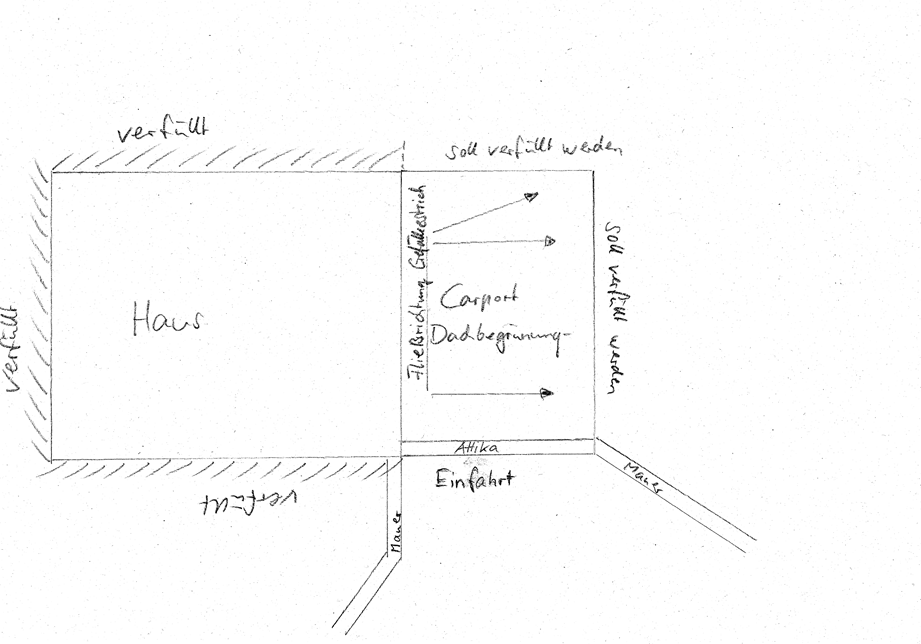 verfüllt
soll verfüllt werden
verfüllt
Haus
Fließrichtung Gefälleestrich
Carport
Dachbegrünung
soll verfüllt werden
Attika
Einfahrt
verfüllt
Mauer
Mauer